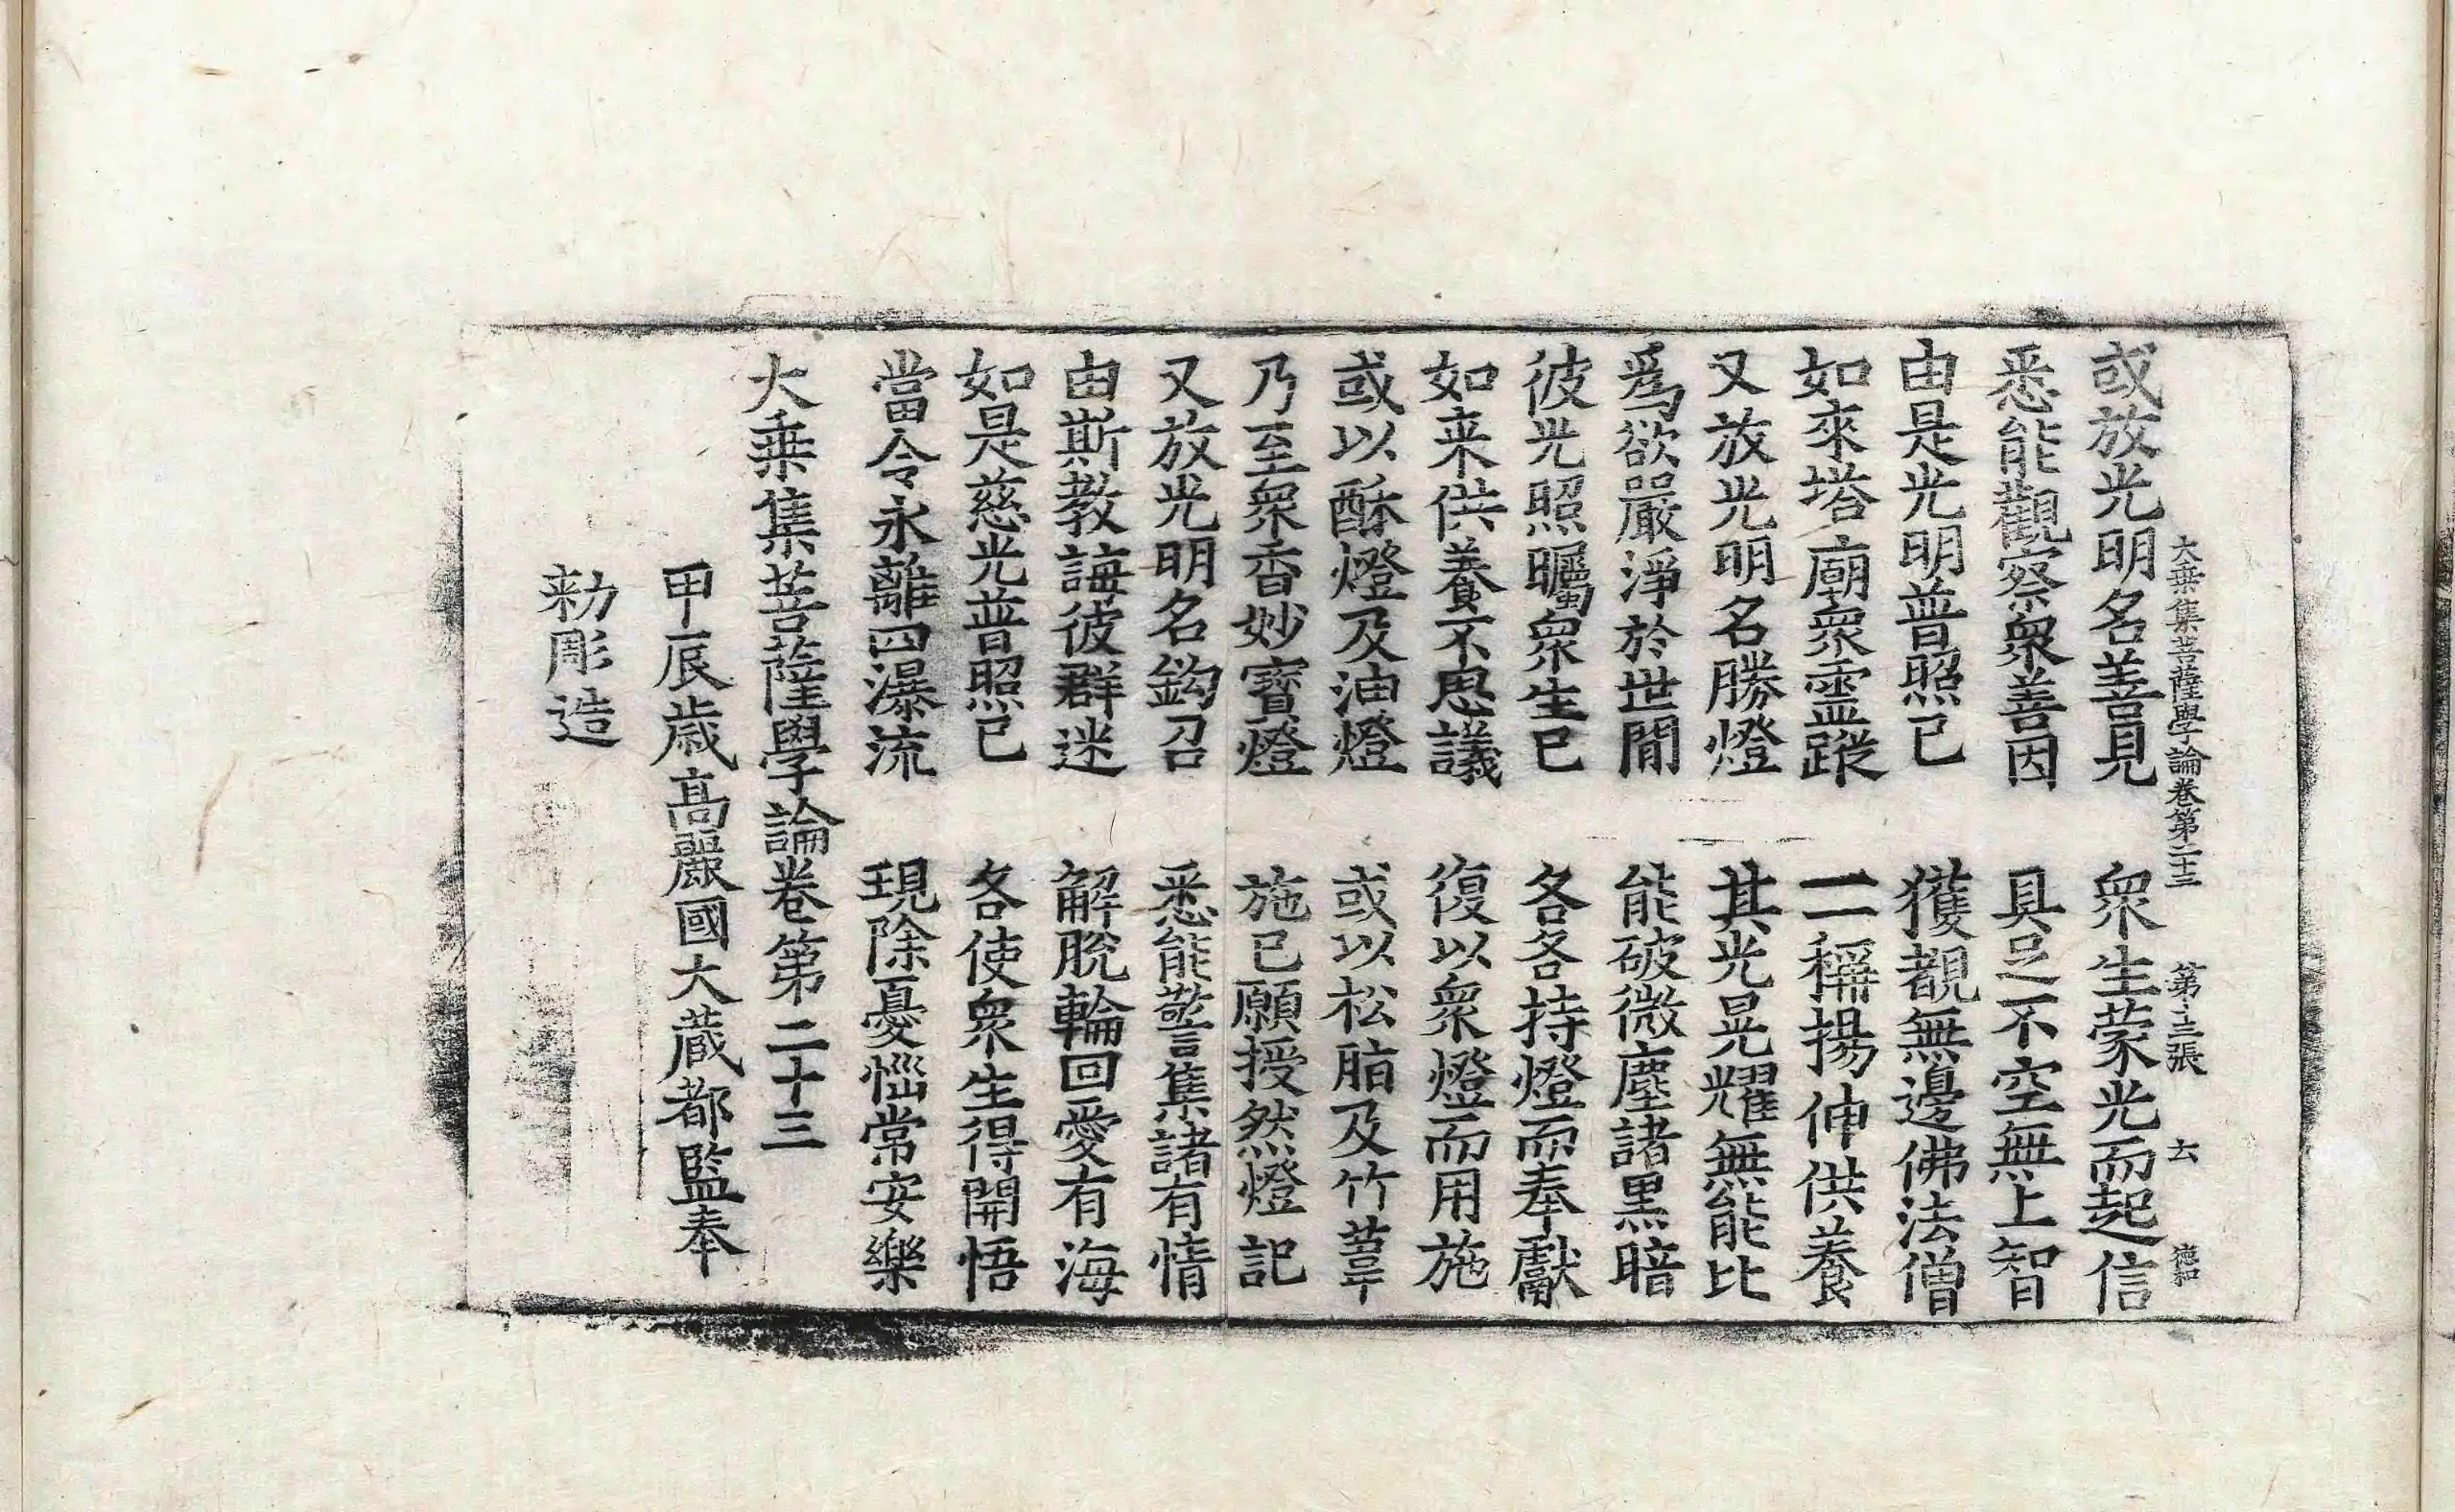 大乗集菩薩學論卷第二十三 第十三張 六
或放光明名善見 衆生蒙光而起信
悉能觀察衆善因 具足不空無上智
由是光明普照已 獲覩無邊佛法僧
如來塔廟衆靈蹤 一一稱揚伸供養
又放光明名勝燈 其光晃耀無能比
爲欲嚴淨於世間 能破微塵諸黒暗
彼光照曯衆生已 各各持燈而奉獻
如来供養不思議 復以衆燈而用施
或以酥燈及油燈 或以松脂及竹葦
乃至衆香妙寶燈 施已願授然燈記
又放光明名鈎召 悉能警集諸有情
由斯教誨彼群迷 解脫輪回愛有海
如是慈光普照已 各使衆生得開悟
當令永離四瀑流 現除憂惱常安樂
大乗集菩薩學論卷第二十三
甲辰歳高麗國大藏都監奉
勅彫造